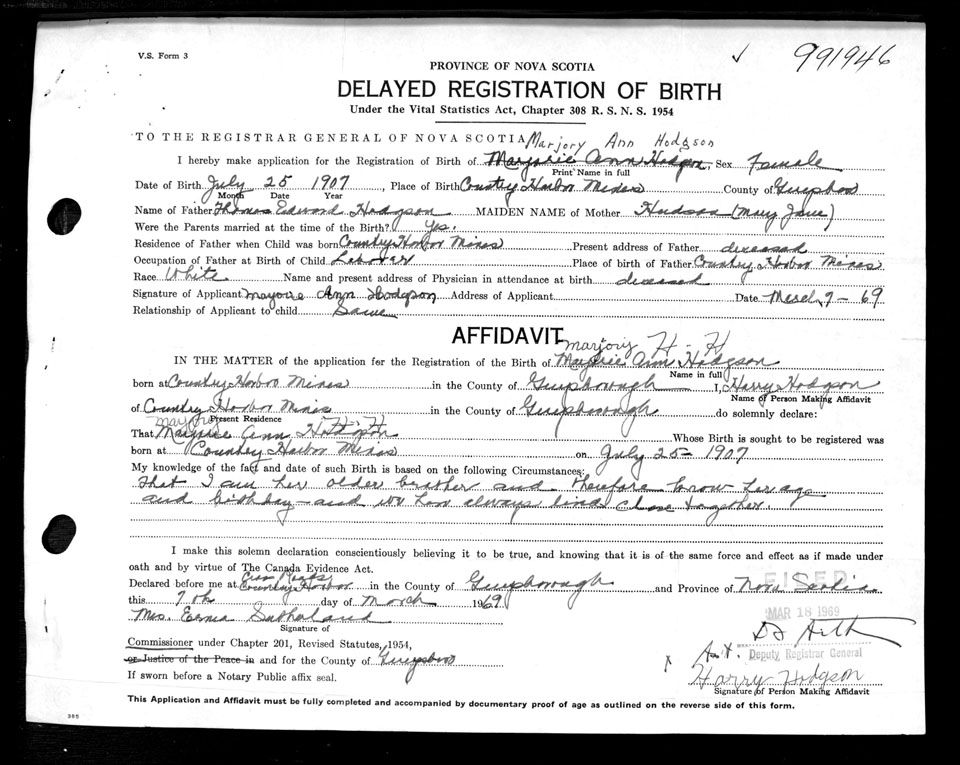 V.S. Form 3
✓ 991946
PROVINCE OF NOVA SCOTIA
DELAYED REGISTRATION OF BIRTH
Under the Vital Statistics Act, Chapter 308 R. S. N. S. 1954
TO THE REGISTRAR GENERAL OF NOVA SCOTIA Marjory Ann Hodgson
I hereby make application for the Registration of Birth of Marjorie Ann Hodgson, Sex Female
Print Name in full
Date of Birth July 25 1907, Place of Birth Country Harbor Mines County of Guysboro
Month Date Year
Name of Father Thomas Edward Hodgson MAIDEN NAME of Mother Hudson (Mary Jane)
Were the Parents married at the time of the Birth? Yes.
Residence of Father when Child was born Country Harbor Mines Present address of Father deceased
Occupation of Father at Birth of Child Laborer Place of birth of Father Country Harbor Mines
Race White Name and present address of Physician in attendance at birth deceased
Signature of Applicant Marjorie Ann Hodgson Address of Applicant Date March 7-69
Relationship of Applicant to child Same
AFFIDAVIT
Marjory H-H
IN THE MATTER of the application for the Registration of the Birth of Marjorie Ann Hodgson
Name in full
born at Country Harbor Mines in the County of Guysborough I, Harry Hodgson
Name of Person Making Affidavit
of Country Harbor Mines in the County of Guysborough do solemnly declare:
Present Residence
Marjory H-H
That Marjorie Ann Hodgson Whose Birth is sought to be registered was
born at Country Harbor Mines on July 25- 1907
My knowledge of the fact and date of such Birth is based on the following Circumstances:
that I am her older brother and therefore know her age
and birthday - and we have always lived close together.
I make this solemn declaration conscientiously believing it to be true, and knowing that it is of the same force and effect as if made under
oath and by virtue of The Canada Evidence Act.
Cross Roads
Declared before me at Country Harbor in the County of Guysborough and Province of Nova Scotia
this 7th day of March 1969
MAR 18 1969
Mrs. Sutherland
Signature of
Commissioner under Chapter 201, Revised Statutes, 1954,
Deputy Registrar General
or Justice of the Peace in and for the County of Guysboro
x Harry Hodgson
If sworn before a Notary Public affix seal.
Signature of Person Making Affidavit
This Application and Affidavit must be fully completed and accompanied by documentary proof of age as outlined on the reverse side of this form.